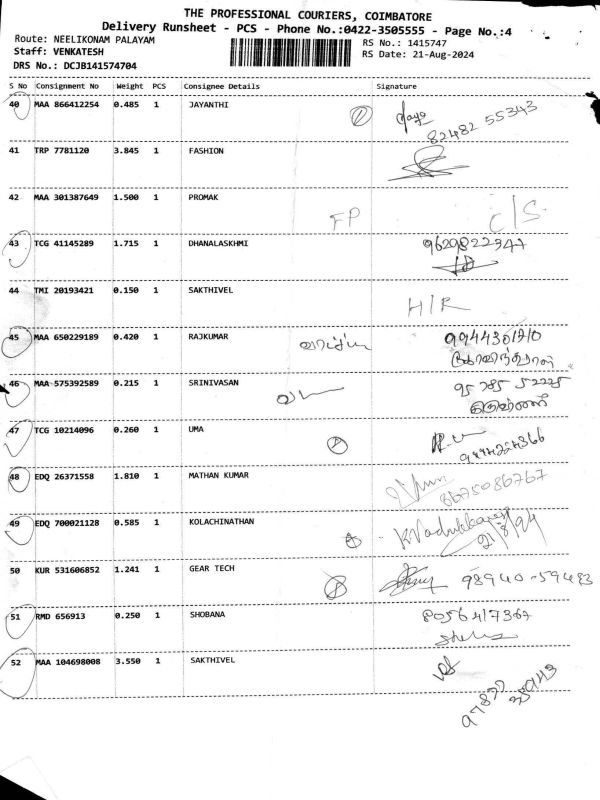 THE PROFESSIONAL COURIERS, COIMBATORE
Delivery Runsheet - PCS - Phone No.:0422-3505555 - Page No.:4
Route: NEELIKONAM PALAYAM
RS No.: 1415747
Staff: VENKATESH
RS Date: 21-Aug-2024
DRS No.: DCJB141574704
S No Consignment No Weight PCS Consignee Details Signature
40 MAA 866412254 0.485 1 JAYANTHI
82482 55343
41 TRP 7781120 3.845 1 FASHION
42 MAA 301387649 1.500 1 PROMAK
FP C/S
43 TCG 41145289 1.715 1 DHANALASKHMI 9629822347
44 TMI 20193421 0.150 1 SAKTHIVEL
H/R
45 MAA 650229189 0.420 1 RAJKUMAR
46 MAA 575392589 0.215 1 SRINIVASAN
47 TCG 10214096 0.260 1 UMA
48 EDQ 26371558 1.810 1 MATHAN KUMAR
8675086767
49 EDQ 700021128 0.585 1 KOLACHINATHAN
21/8/24
50 KUR 531606852 1.241 1 GEAR TECH 98940-59483
51 RMD 656913 0.250 1 SHOBANA 8056417367
52 MAA 104698008 3.550 1 SAKTHIVEL